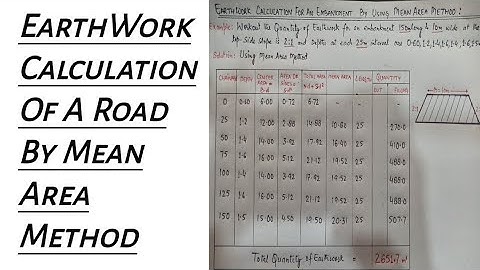 EarthWork
Calculation
Of A Road
By Mean
Area
Method
EARTHWORK CALCULATION FOR AN EMBANKMENT BY USING MEAN AREA METHOD:
Example: Workout the Quantity of Earthwork for an embankment 150m long & 10m wide at the
top. Side slope is 2:1 and depths at each 25m interval are 0.60, 1.2, 1.4, 1.6, 1.4, 1.6,
Solution: Using Mean Area Method
CHAINAGE DEPTH CENTER AREA Bd AREA OF SIDES Sd² TOTAL AREA Bd+Sd² MEAN AREA LENGTH QUANTITY
CUT FILLING
0 0.60 6.00 0.72 6.72 - - - -
25 1.2 12.00 2.88 14.88 10.80 25 270.0
50 1.4 14.00 3.92 17.92 16.40 25 410.0
75 1.6 16.00 5.12 21.12 19.52 25 488.0
100 1.4 14.00 3.92 17.92 19.52 25 488.0
125 1.6 16.00 5.12 21.12 19.52 25 488.0
150 1.5 15.00 4.50 19.50 20.31 25 507.7
Total Quantity of Earthwork = 2651.7 m³